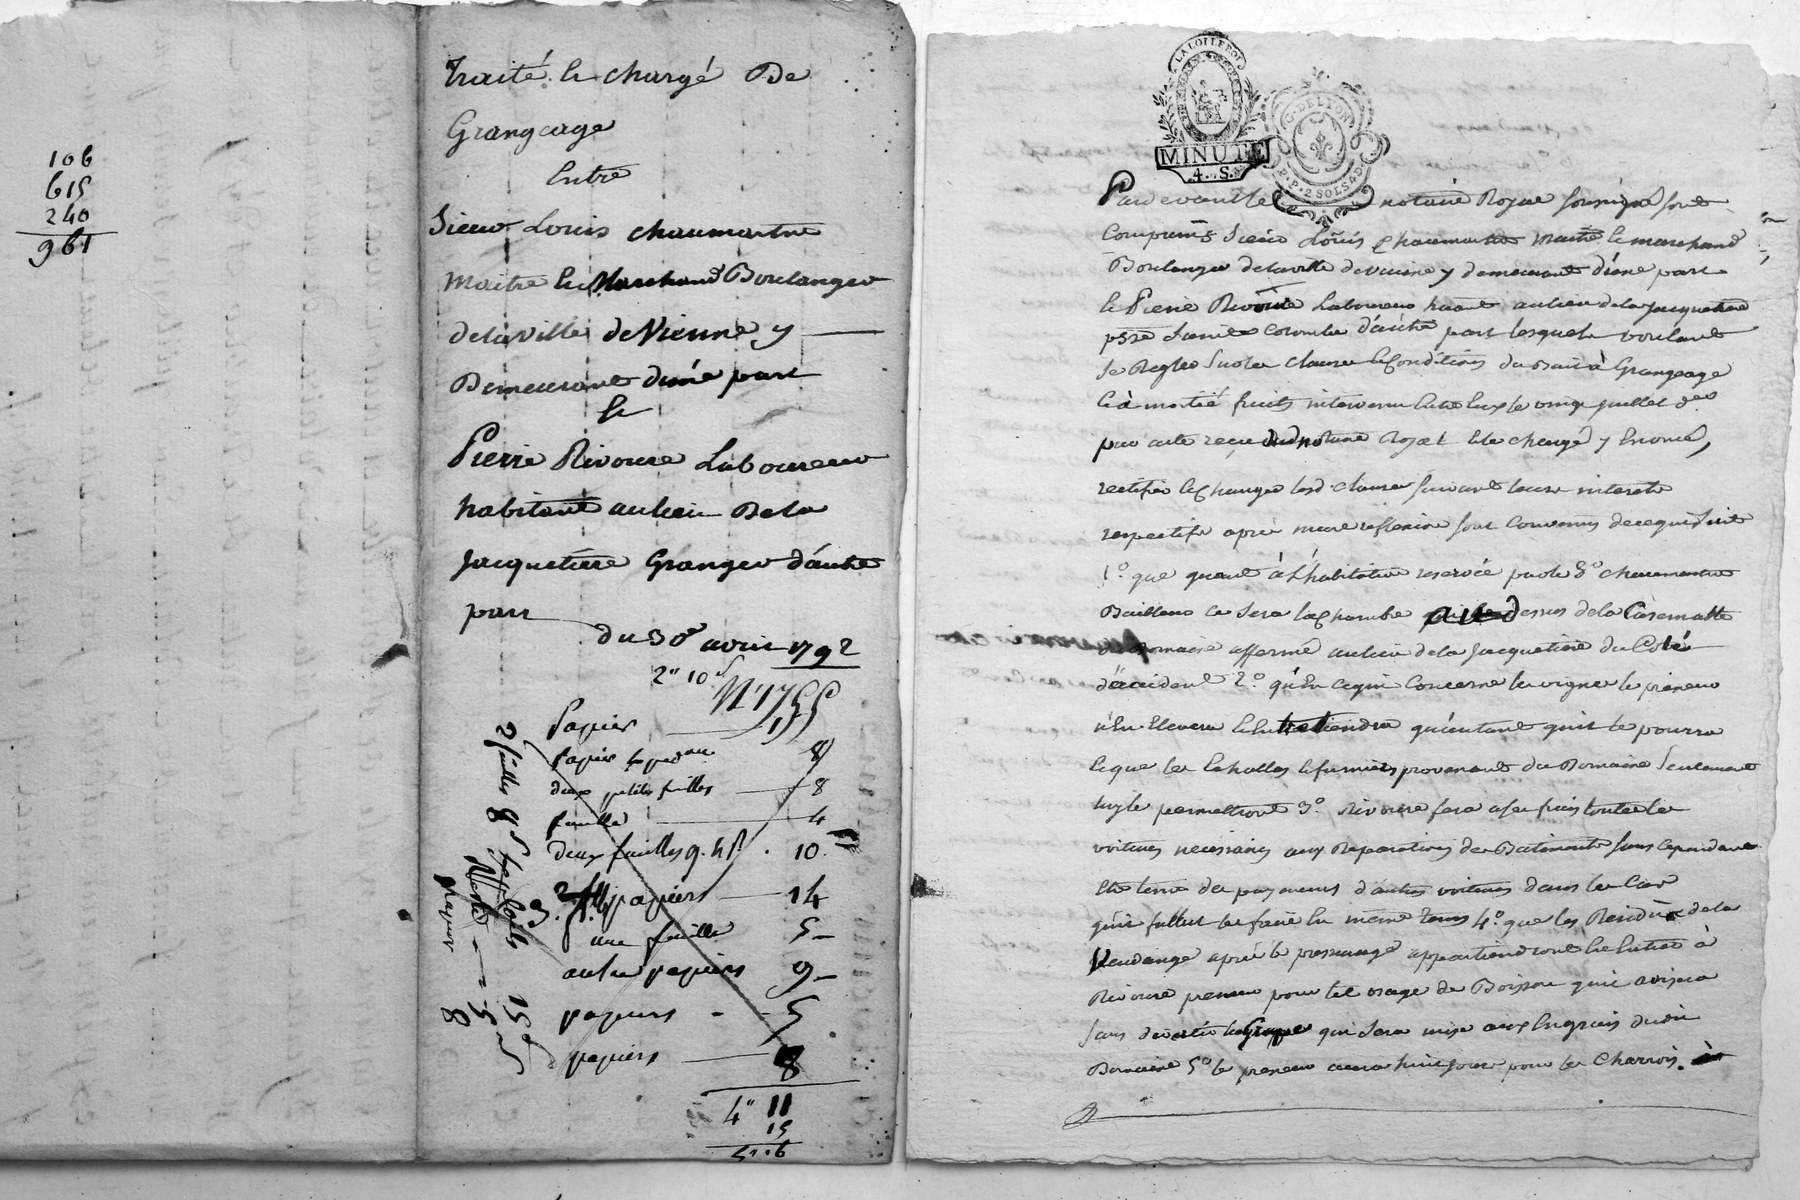 106
615
240
961
Traité le chargé De
Grangeage
Entre
Sieur Louis chaumartin
Maitre le Marchand Boulanger
de la ville de Vienne y
Demeurant d'une part
Pierre Rivoire Laboureur
habitant au lieu De la
Jacquetiere Granger d'autre
part
du 30e avril 1792
2" 10s
Papier
papier
deux petits feuilles 8
feuille 4
deux feuilles 9. 10
papiers 14
une feuille 5
autre papiers 9
papiers 5
papiers 8
4" 11
15
5" 6
2 feuilles
8
LA LOI LE ROI
MINUTE
4. S.
G. DE LYON
P. P. 2 SOLS 4 D.
Pardevant le notaire Royal soussigné sont
Comparus Sieur Louis Chaumartin Maitre le marchand
Boulanger de la ville de Vienne y demeurant d'une part
le Pierre Rivoire Laboureur au lieu de la Jacquetiere
psse Sainte Colombe d'autre part lesquels voulant
Se Regler Sur les clauses les Conditions du Bail à Grangeage
à moitié fruits intervenu Entre Eux le vingt juillet
par acte reçu dud notaire Royal le chargé y Enoncé,
rectifier le changer lesd. clauses suivant leurs interets
respectifs apres mure reflexion sont Convenus de ce qui Suit
1.° que quant à l'habitation reservée par le Sr chaumartin
Bailleur ce Sera la Chambre au dessus de la Casematte
Domaine affermé au lieu de la Jacquetiere du Coté
d'accident 2.° qu'En ce qui Concerne les vignes le preneur
n'En Elevera le Entretiendra qu'autant qu'il le pourra
le que les Echallas le fumiers provenant du Domaine Seulement
luy le permettront 3.° Rivoire fera a ses frais toutes les
voitures necessaires aux Reparations des Batiments sans cependant
Etre tenu du payement d'autres voitures dans le Cas
qu'il fallut les faire En même tems 4.° que les Residus de la
Vendange après le pressurage appartiendront En Entier à
Rivoire preneur pour tel usage de Boisson qu'il avisera
sans divertir la Grappe qui Sera mise aux Engrais dudit
Domaine 5° le preneur aura huit jours pour les Charrois.